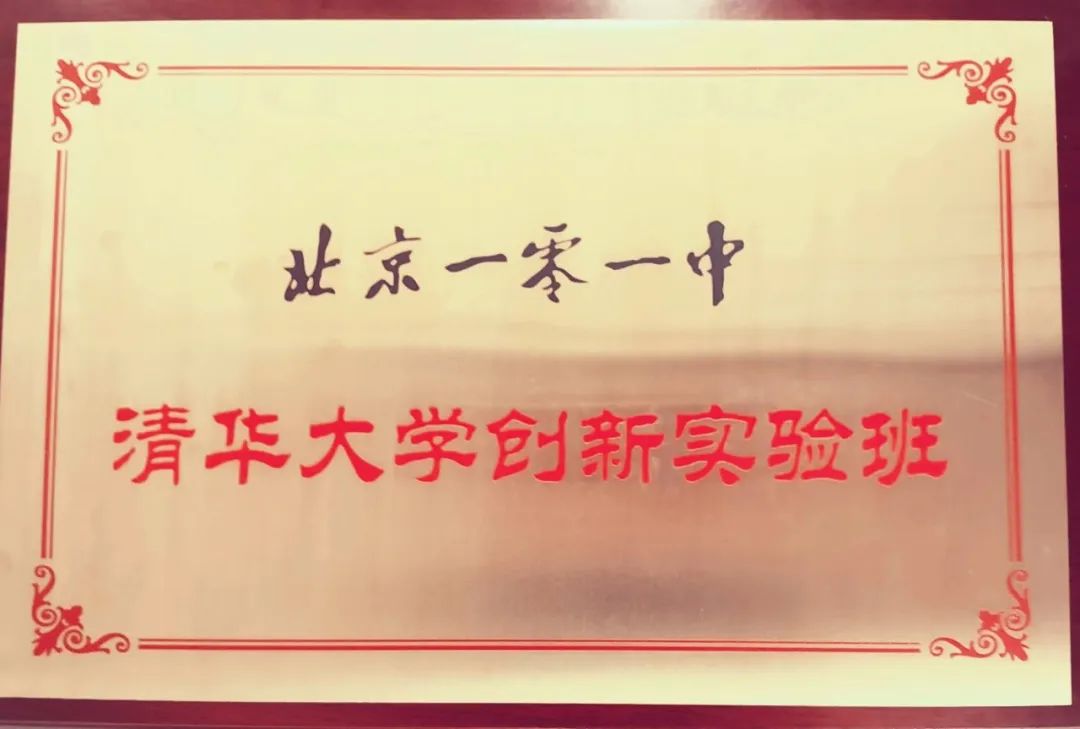 北京一零一中
清华大学创新实验班